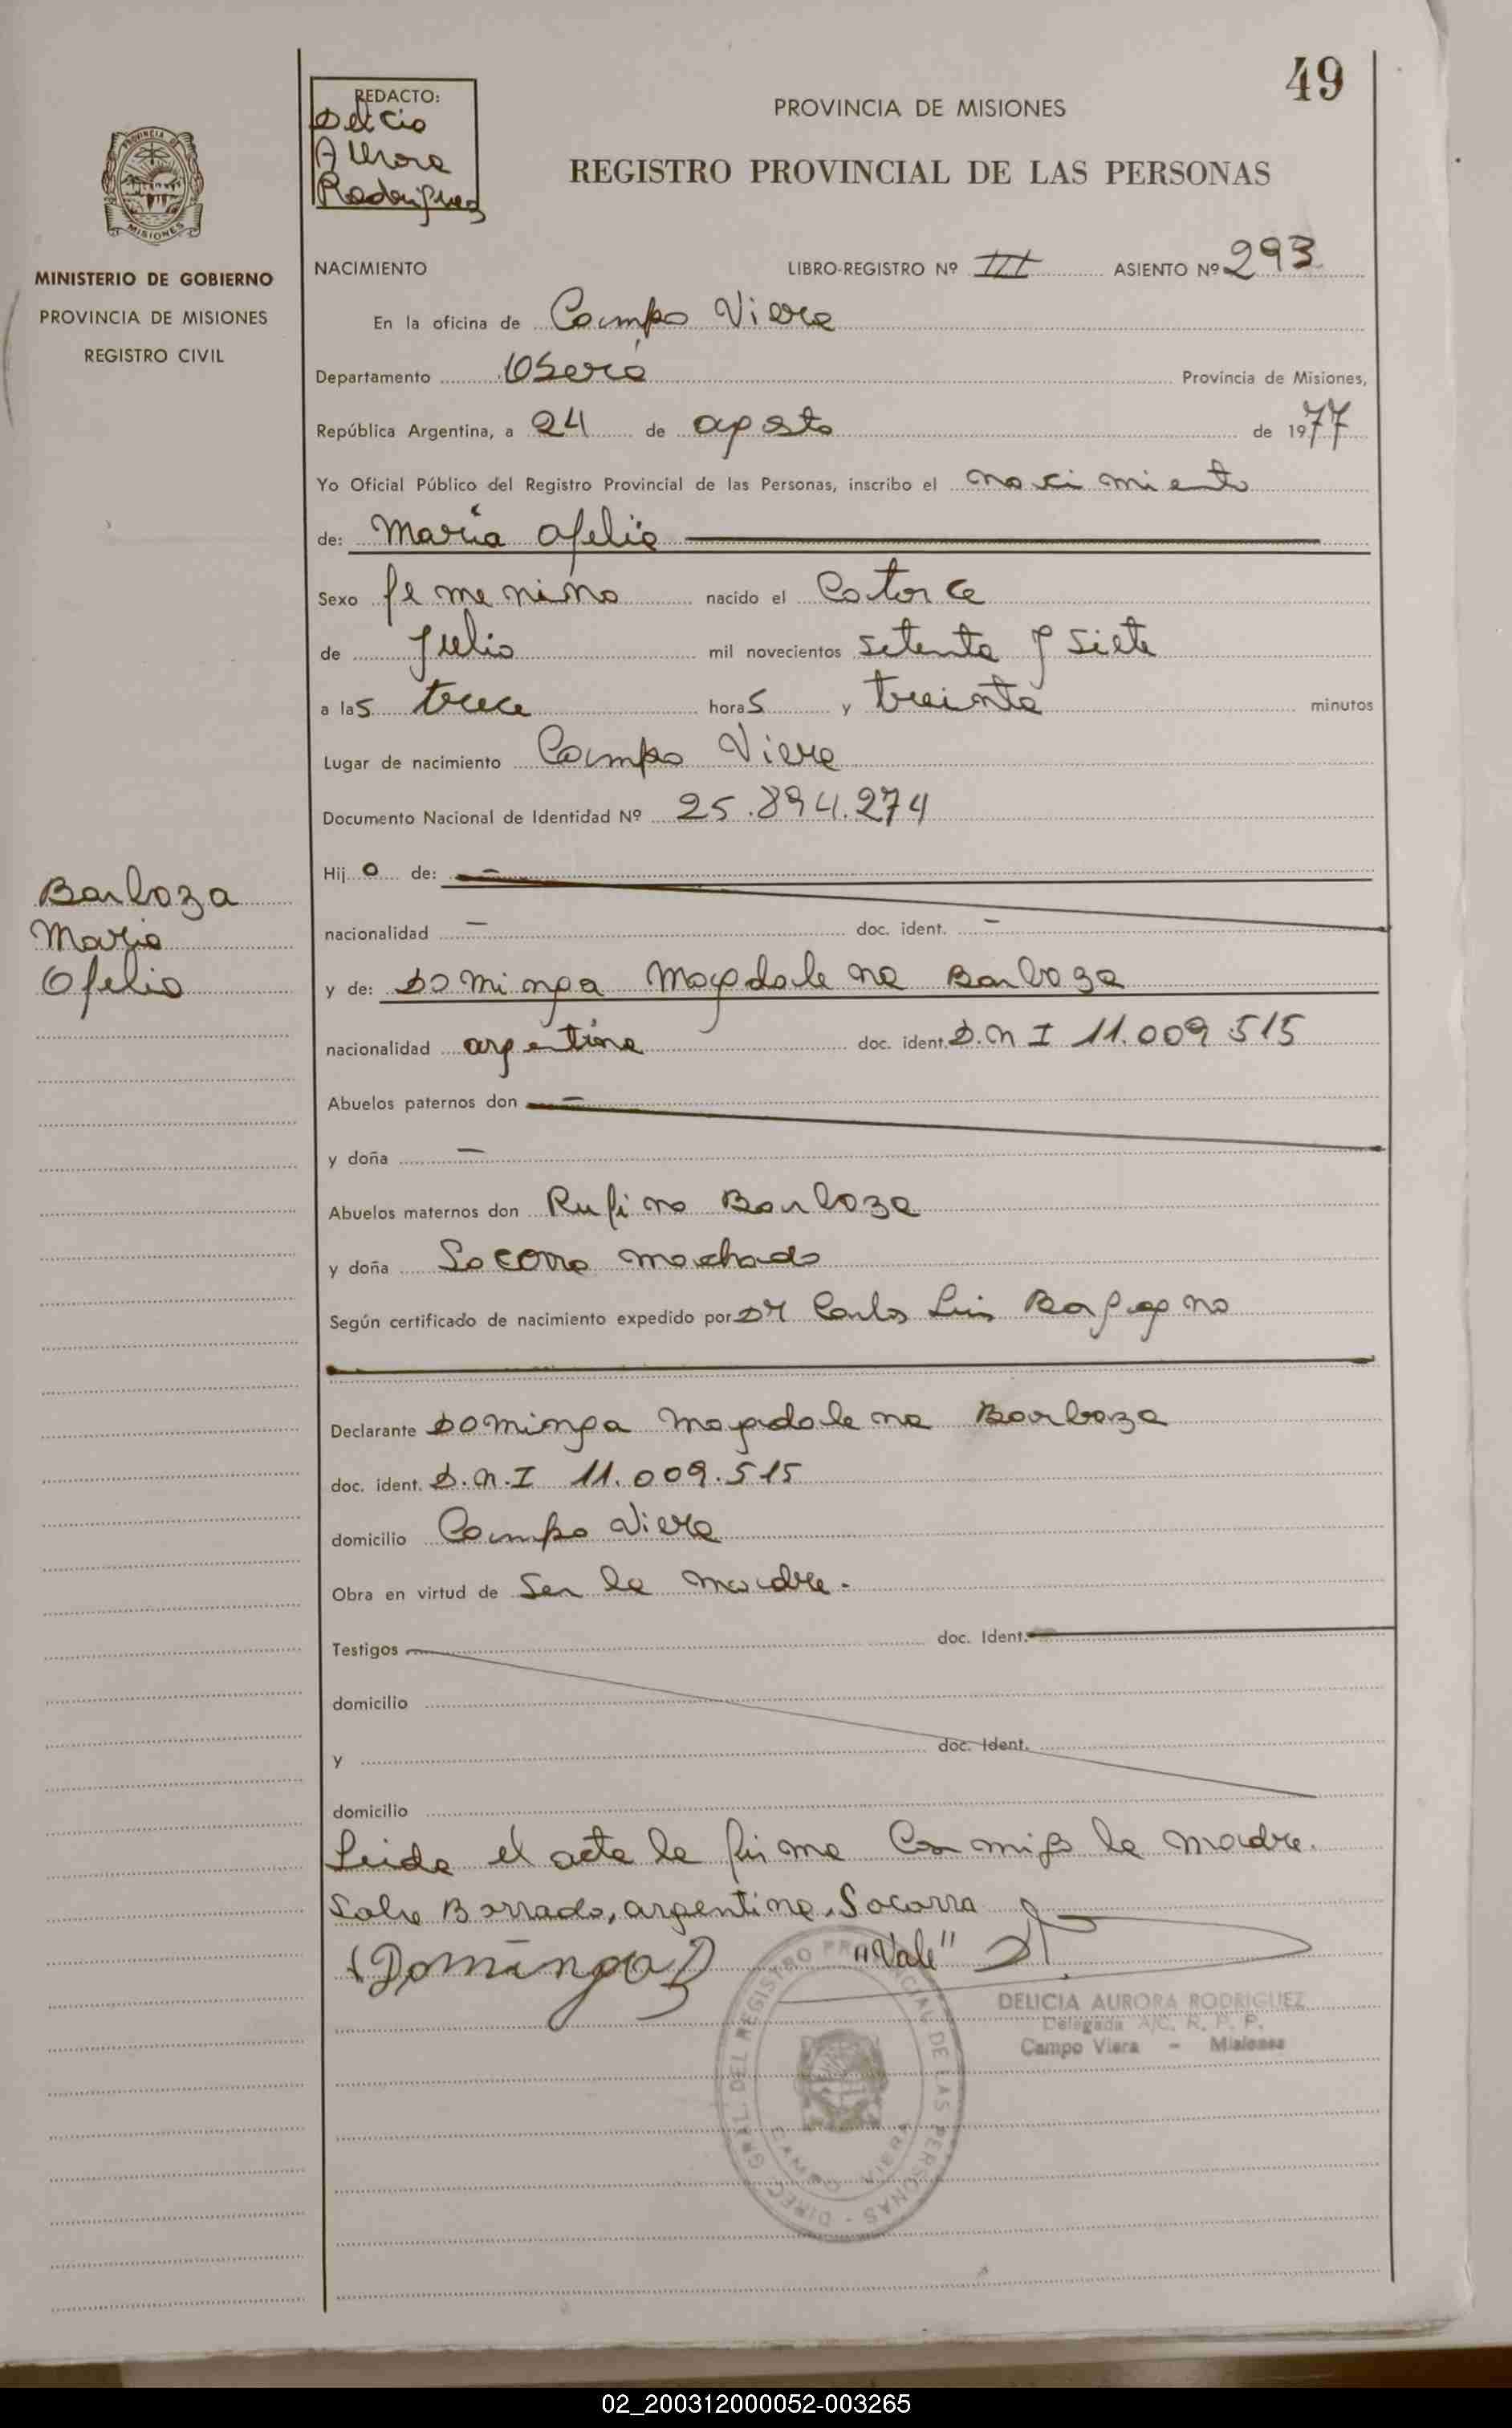 49
REDACTO:
Delcia
Aurora
Rodriguez
PROVINCIA DE MISIONES
REGISTRO PROVINCIAL DE LAS PERSONAS
MISIONES
MINISTERIO DE GOBIERNO
PROVINCIA DE MISIONES
REGISTRO CIVIL
NACIMIENTO LIBRO-REGISTRO Nº III ASIENTO Nº 293
En la oficina de Campo Viera
Departamento Oberá Provincia de Misiones,
República Argentina, a 24 de agosto de 1977
Yo Oficial Público del Registro Provincial de las Personas, inscribo el nacimiento
de: María Ofelia
Sexo femenino nacido el Catorce
de Julio mil novecientos setenta y siete
a las trece horas y treinta minutos
Lugar de nacimiento Campo Viera
Documento Nacional de Identidad Nº 25.894.274
Hij o de: —
nacionalidad — doc. ident. —
Barboza
Maria
Ofelia
y de: Dominga Magdalena Barboza
nacionalidad argentina doc. ident. D.N I 11.009.515
Abuelos paternos don —
y doña —
Abuelos maternos don Rufino Barboza
y doña Socorra machado
Según certificado de nacimiento expedido por Dr Carlos Luis
Declarante Dominga Magdalena Barboza
doc. ident. D.N.I 11.009.515
domicilio Campo Viera
Obra en virtud de Ser la madre.
Testigos doc. Ident.
domicilio
y doc. Ident.
domicilio
Leida el acta la firma Conmigo la madre.
Sobre Borrado, argentina, Socorra
Dominga B "Vale"
DELICIA AURORA RODRIGUEZ
Delegada A/C. R. P. P.
Campo Viera - Misiones
DIREC. GRAL DEL REGISTRO PROVINCIAL DE LAS PERSONAS -
CAMPO VIERA
02_200312000052-003265